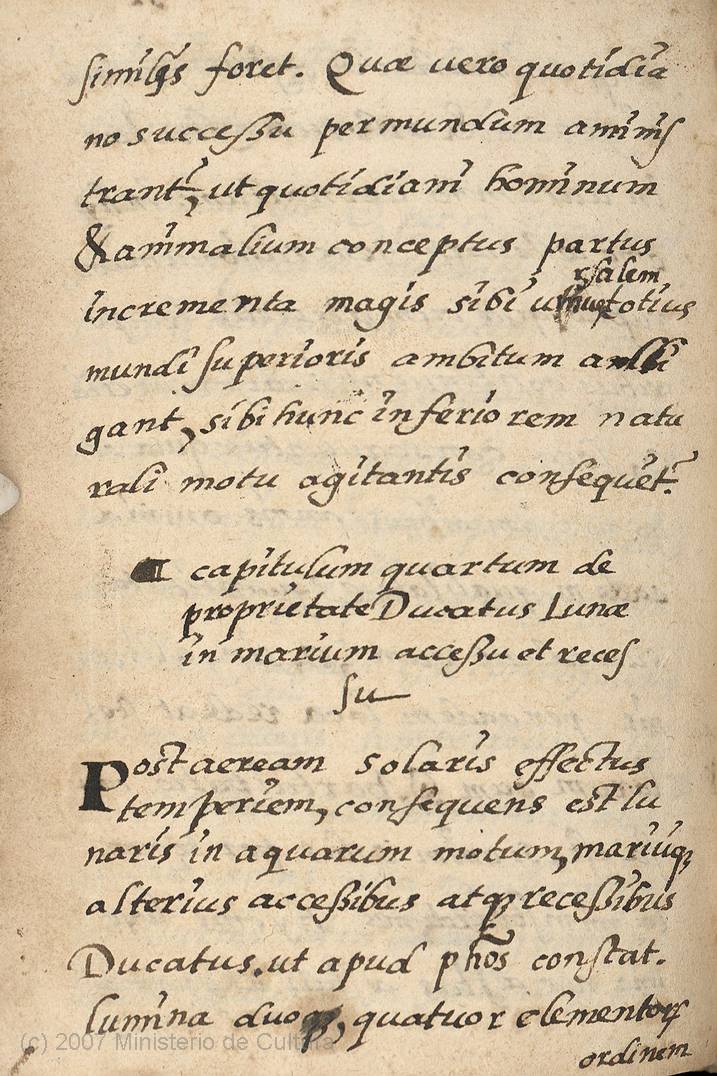 similis foret. Quæ vero quotidia
no successu per mundum amims
trant, ut quotidiani hominum
& animalium conceptus partus
rsalem
incrementa magis sibi unive totius
mundi superioris ambitum
gant, sibi hunc inferiorem natu
rali motu agitantis consequet.
¶ capitulum quartum de
proprietate Ducatus Lunæ
in marium accessu et reces
su
Post aeream solaris effectus
temperiem, consequens est lu
naris in aquarum motum, mariuqꝫ
alterius accessibus atqꝫ recessibus
Ducatus. ut apud phos constat.
lumina duo, quatuor elementorꝝ
ordinem
(c) 2007 Ministerio de Cultura